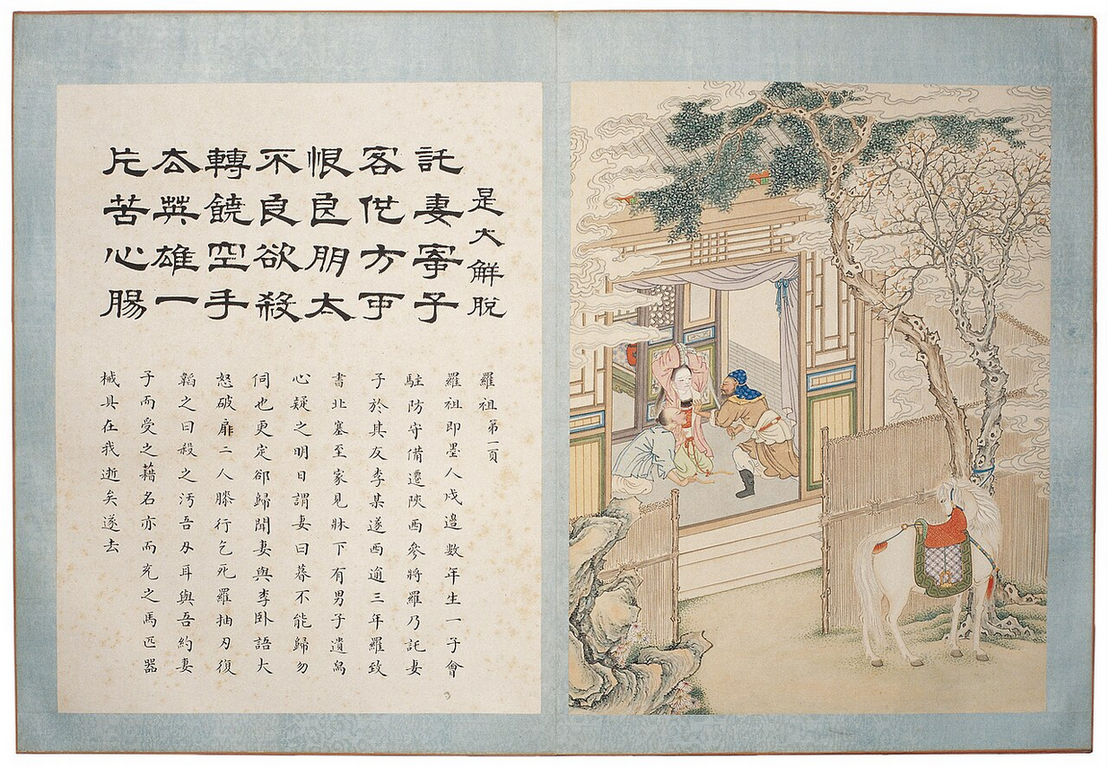 是大觧脫
託妻寄子
客他方可
恨良朋太
不良欲殺
轉饒空手
去英雄一
片苦心腸
羅祖第一頁
羅祖即墨人戍邉數年生一子會
駐防守備遷陝西參將羅乃託妻
子於其友李某遂西逾三年羅致
書北塞至家見牀下有男子遺舄
心疑之明日謂妻曰暮不能歸勿
伺也更定卻歸聞妻與李卧語大
怒破扉二人膝行乞死羅抽刃復
韜之曰殺之汚吾刃耳與吾約妻
子而受之藉名亦而充之馬匹器
械具在我逝矣遂去